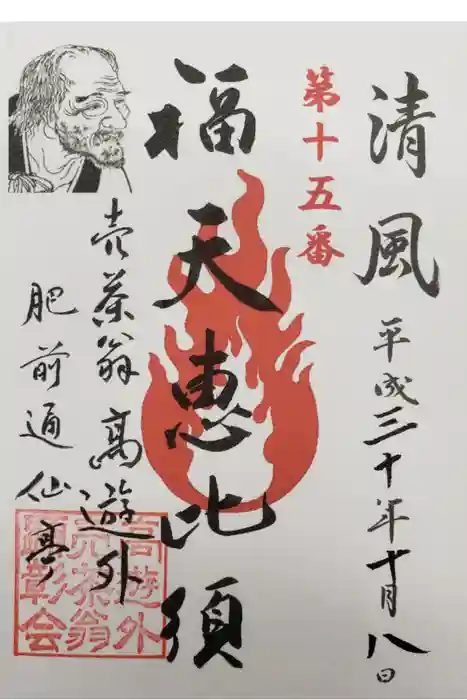 清風 平成三十年十月八日
第十五番
福天恵比須
売茶翁 高遊外
肥前通仙亭
高遊外
売茶翁
顕彰会